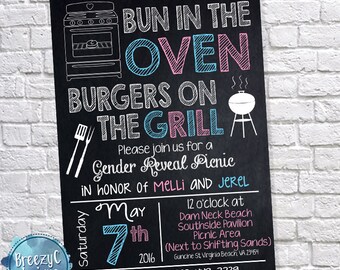 BUN IN THE
OVEN
BURGERS ON
THE GRILL
Please join us for a
Gender Reveal Picnic
IN HONOR OF MELLI AND JEREL
Saturday
May
7th
2016
12 o'clock at
Dam Neck Beach
Southside Pavilion
Picnic Area
(Next to Shifting Sands)
Virginia Beach, VA
BreezyC